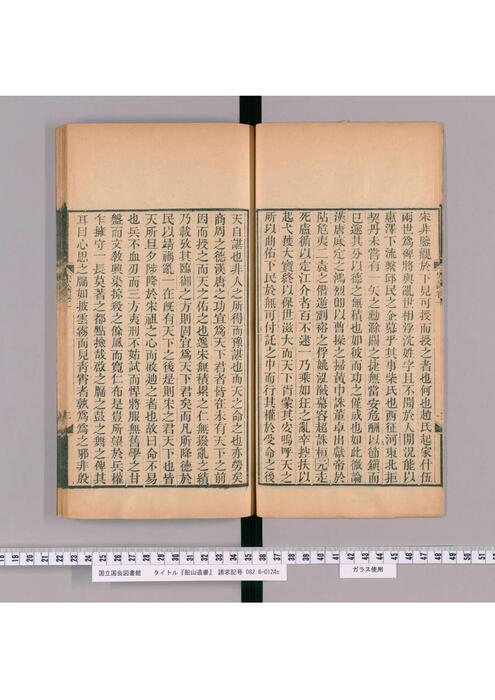 宋非鑒觀於下見可授而授之者也何也趙氏起家什伍
兩世為裨將與亂世相浮沈姓字且不聞於人閒況能以
惠澤下流繫邱民之企慕乎其事柴氏也西征河東北拒
契丹未嘗有一矢之勳滁關之捷無當安危酬以節鎮而
已逾其分以德之無積也如彼而功之僅成也如此微論
漢唐底定之鴻烈卽以曹操之掃黃巾誅董卓出獻帝於
阽危夷二袁之僭逆劉裕之俘姚泓馘慕容超誅桓元走
死盧循以定江介者百不逮一乃乘如狂之亂卒控扶以
起弋獲大寶終以保世滋大而天下胥蒙其安嗚呼天之
所以曲佑下民於無可付託之中而行其權於受命之後
天自諶也非人之所得而豫諶也而天之命之也亦勞矣
商周之德漢唐之功宜為天下君者皆在未有天下之前
因而授之而天之佑之也逸宋無積累之仁無撥亂之績
乃載攷其臨御之方則固宜為天下君矣而凡所降德於
民以靖禍亂一在旣有天下之後是則宋之君天下也皆
天所旦夕陟降於宋祖之心而啟迪之者也故曰命不易
也兵不血刃而三方夷刑不姑試而悍將服無舊學之甘
盤而文敎興染掠殺之餘風而寬仁布是豈所望於兵權
乍擁守一長莫著之都點撿哉啟之牖之鼓之舞之俾其
耳目心思之牖如披雲霧而見靑霄者孰為為之邪非殷
国立国会図書館 タイトル『船山遺書』 請求記号 082.6-O124s
ガラス使用